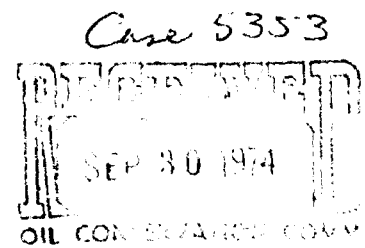 Case 5353
RECEIVED
SEP 30 1974
OIL CONSERVATION COMM